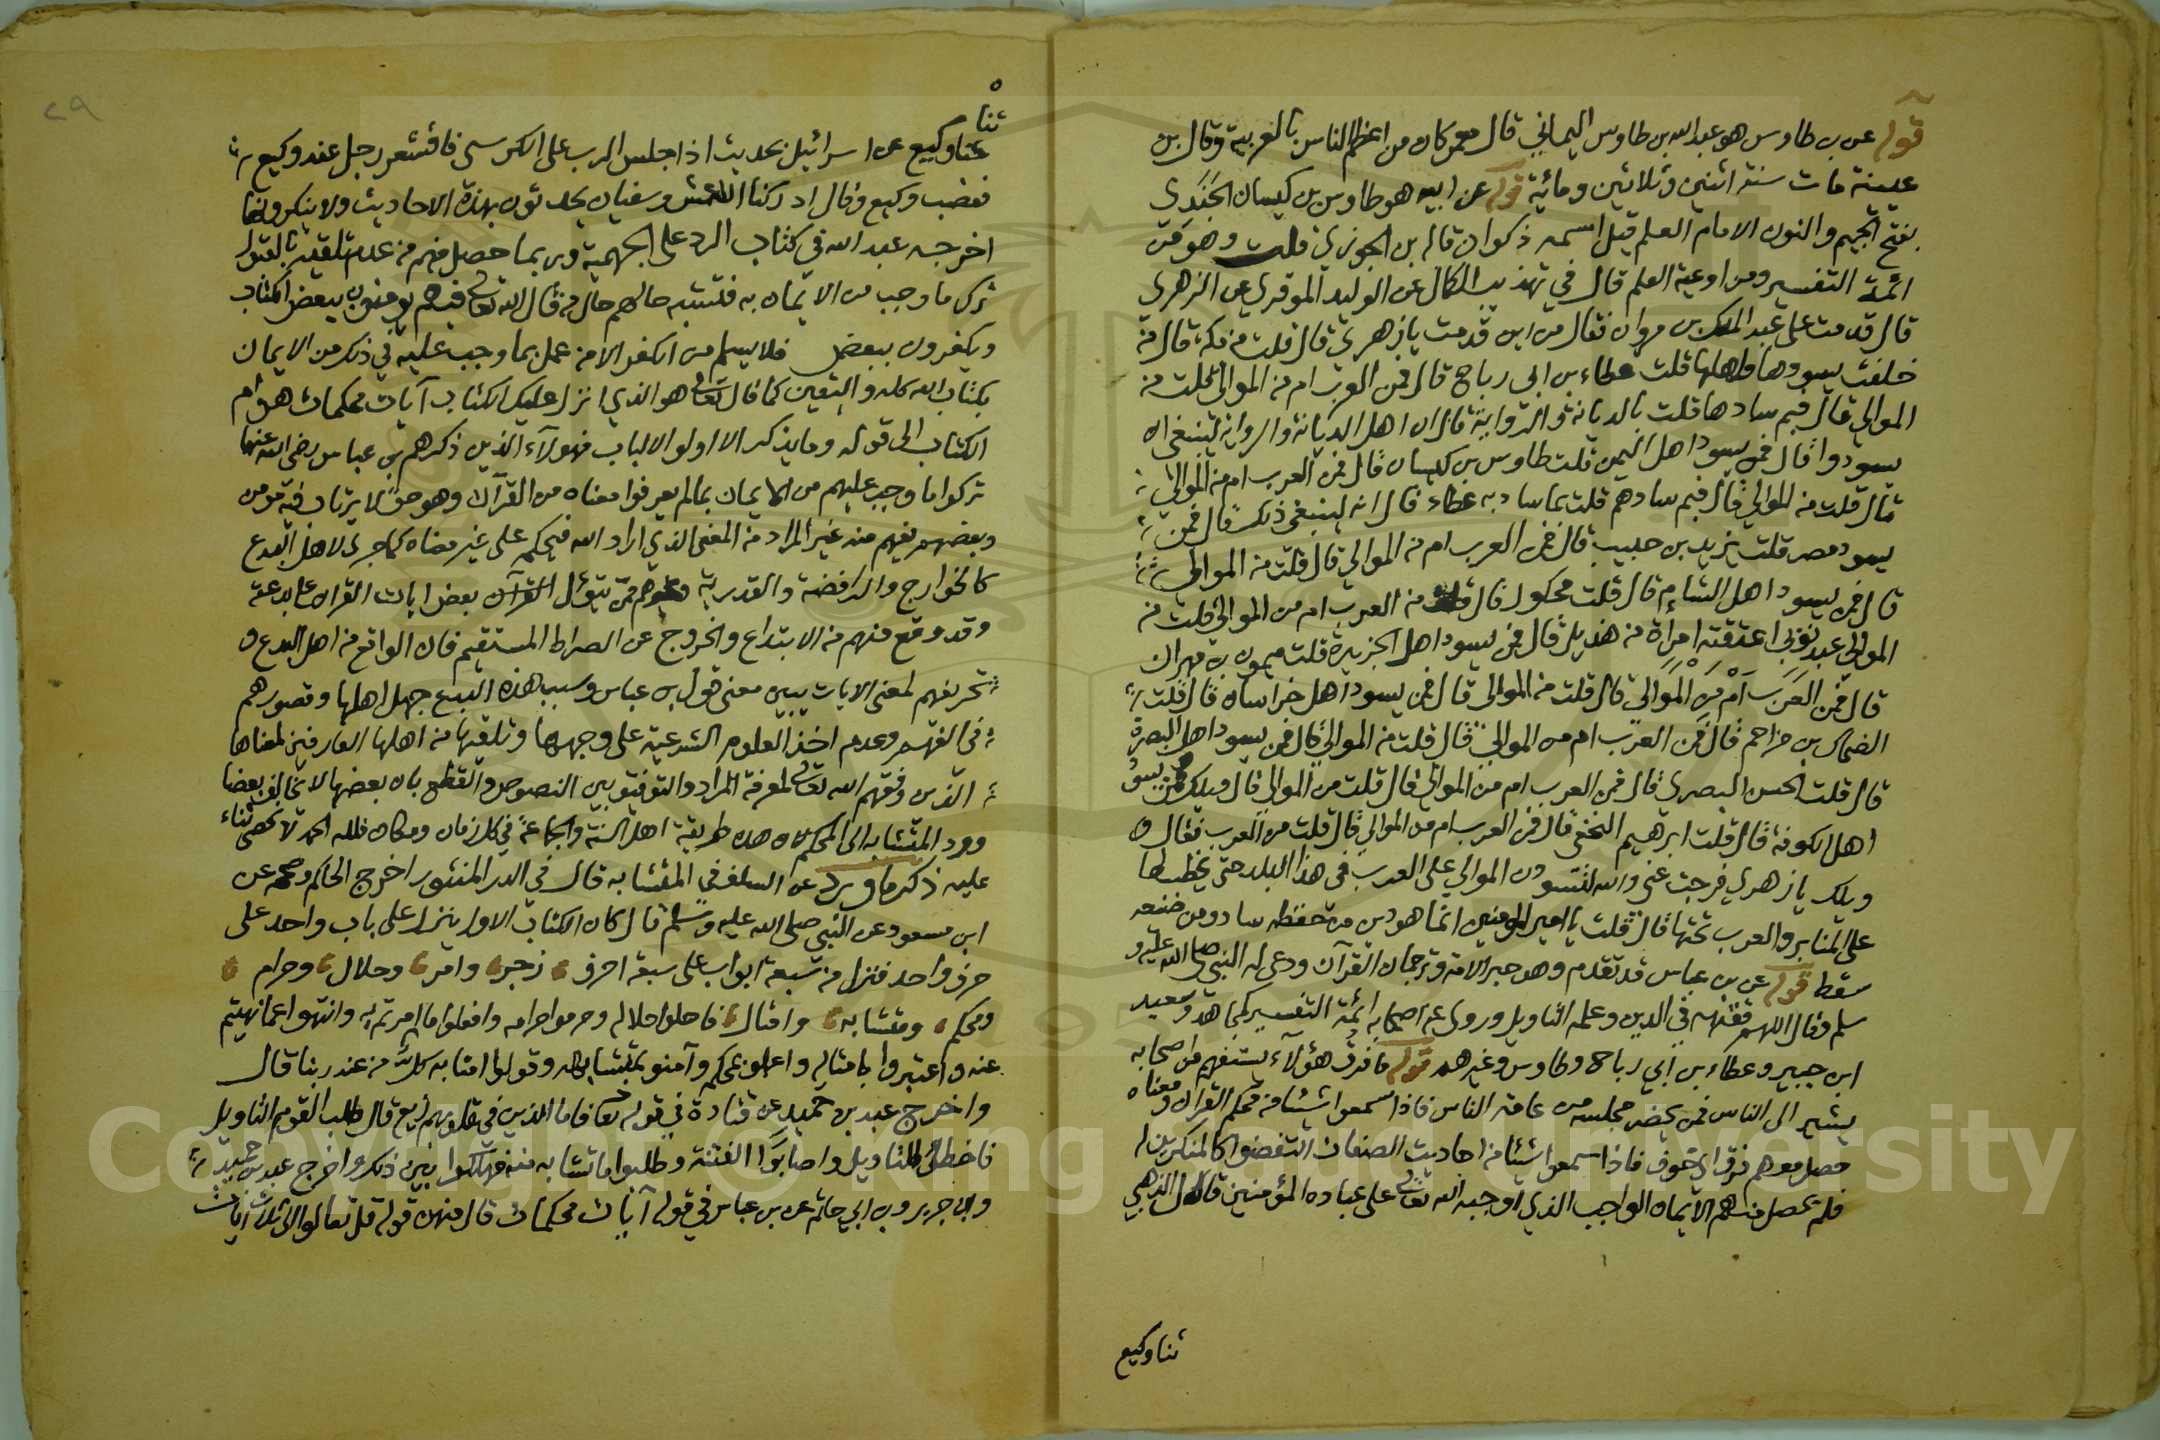 قوله عن بن طاوس هو عبد الله بن طاوس اليماني قال معمر كان من اعظم الناس بالعربية وقال بن
عيينة مات سنة اثنين وثلاثين ومائية قوله عن ابيه هو طاوس بن كيسان الجَنَدي
بفتح الجيم والنون الامام العلم قيل اسمه ذكوان قاله بن الجوزي قلت وهو من
ائمة التفسير ومن اوعية العلم قال في تهذيب الكمال عن الوليد الموقري عن الزهري
قال قدمت على عبد الملك بن مروان فقال من اين قدمت يا زهري قال قلت من مكة قال من
خلفت يسودها واهلها قلت عطاء بن ابي رباح قال فمن العرب ام من الموالي قلت من
الموالي قال فبم سادها قلت بالديانة والرواية قال ان اهل الديانة والرواية لينبغي ان
يسودوا قال فمن يسود اهل اليمن قلت طاوس بن كيسان قال فمن العرب ام من الموالي
قال قلت من الموالي قال فبم سادهم قلت بما ساد به عطاء قال انه لينبغي ذلك قال فمن
يسود مصر قلت يزيد بن حبيب قال فمن العرب ام من الموالي قال قلت من الموالي
قال فمن يسود اهل الشام قال قلت مكحول قال من العرب ام من الموالي قلت من
الموالي عبد نوبي اعتقته امراة من هذيل قال فمن يسود اهل الجزيرة قلت ميمون بن مهران
قال فمن العَرَب اَمْ مِنَ الْمَوَالي قال قلت من الموالي قال فمن يسود اهل خراسان قال قلت
الضحاك بن مزاحم قال فمن العرب ام من الموالي قال قلت من الموالي قال فمن يسود اهل البصرة
قال قلت الحسن البصري قال فمن العرب ام من الموالي قال قلت من الموالي قال ويلك فمن يسود
اهل الكوفة قال قلت ابرهيم النخعي قال فمن العرب ام من الموالي قال قلت من العرب فقال
ويلك يا زهري فرجت عني والله لتسودن الموالي على العرب في هذا البلد حتى يخطب لها
على المنابر والعرب تحتها قال قلت يا امير المومنين انما هو دين من حفظه ساد ومن ضيعه
سقط قوله عن بن عباس قد تقدم وهو حبر الامة وترجمان القرآن ودعى له النبي صلى الله عليه و
سلم وقال اللهم فقهه في الدين وعلمه التاويل وروى عنه اصحابه ائمة التفسير كمجاهد وسعيد
ابن جبير وعطاء بن ابي رباح وطاوس وغيرهم قوله ما فرق هؤلآء يستفهم من اصحابه
يشير الى الناس فمن يحضر مجلسه من عامة الناس فاذا سمعوا شيئا من محكم القران ومعناه
حصل معهم فرق اي خوف فاذا سمعوا شيئا من احاديث الصفات انتفضوا كالمنكرين له
فلم يحصل منهم الايمان الواجب الذي اوجبه الله تعالى على عباده المؤمنين قال الذهبي
ثنا وكيع
ثنا
وكيع عن اسرائيل بحديث اذا جلس الرب على الكرسي فاقشعر رجل عند وكيع
فغضب وكيع وقال ادركنا الاعمش وسفيان يحدثون بهذه الاحاديث ولا ينكرونها
اخرجه عبد الله في كتاب الرد على الجهمية وربما حصل منهم من عدم تلقيه بالقبول
ترك ما وجب من الايمان به فتشبه حالهم حال من قال الله تعالى فيهم يومنون ببعض الكتاب
ويكفرون ببعض فلا يسلم من الكفر الا من عمل بما وجب عليه في ذلك من الايمان
بكتاب الله كله واليقين كما قال تعالى هو الذي انزل عليك الكتاب آيات محكمات هن ام
الكتاب الى قوله وما يذكر الا اولوا الالباب فهولآء الذين ذكرهم بن عباس رضي الله عنهما
تركوا ما وجب عليهم من الايمان بما لم يعرفوا معناه من القرآن وهو حق لا يرتاب فيه مومن
وبعضهم يفهم منه غير المراد من المعنى الذي اراد الله فيحكم على غير معناه كما جرى لاهل البدع
كالخوارج والرافضة والقدرية ونحوهم ممن يتؤل القرآن بعض ايات القران على بدعته
وقد وقع منهم من الابتداع والخروج عن الصراط المستقيم فان الواقع من اهل البدع و
تحريفهم لمعنى الايات يبين معنى قول بن عباس وسبب هذه البدع جهل اهلها وقصورهم
في الفهم وعدم اخذ العلوم الشرعية على وجهها وتلقيها من اهلها العارفين لمعناها
الذين وفقهم الله تعالى لمعرفة المراد والتوفيق بين النصوص والقطع بان بعضها لا يخالف بعضا
ورد المتشابه الى المحكم هذه طريقة اهل السنة والجماعة في كل زمان ومكان فلله الحمد لا نحصي ثناء
عليه ذكر ما ورد عن السلف في المتشابه قال في الدر المنثور اخرج الحاكم وصححه عن
ابن مسعود عن النبي صلى الله عليه وسلم قال كان الكتاب الاول ينزل على باب واحد على
حرف واحد فنزل من سبعة ابواب على سبعة احرف زجر وامر وحلال وحرام
ومحكم ومتشابه وامثال فاحلوا حلاله وحرموا حرامه وافعلوا ما امرتم به وانتهوا عما نهيتم
عنه واعتبروا بامثاله واعملوا بمحكمه وآمنو بمتشابهه وقولوا امنا به كل من عند ربنا قال
واخرج عبد بن حميد عن قتادة في قوله تعالى فاما الذين في قلوبهم زيغ قال طلب القوم التاويل
فاخطئوا التاويل واصابوا الفتنة وطلبوا ما تشابه منه فهلكوا بين ذلك واخرج عبد بن حميد
وابن جرير وبن ابي حاتم عن بن عباس في قوله آيات محكمات قال منهن قوله قل تعالوا الى ثلاث ايات
٢٩
Copyright © King Saud University